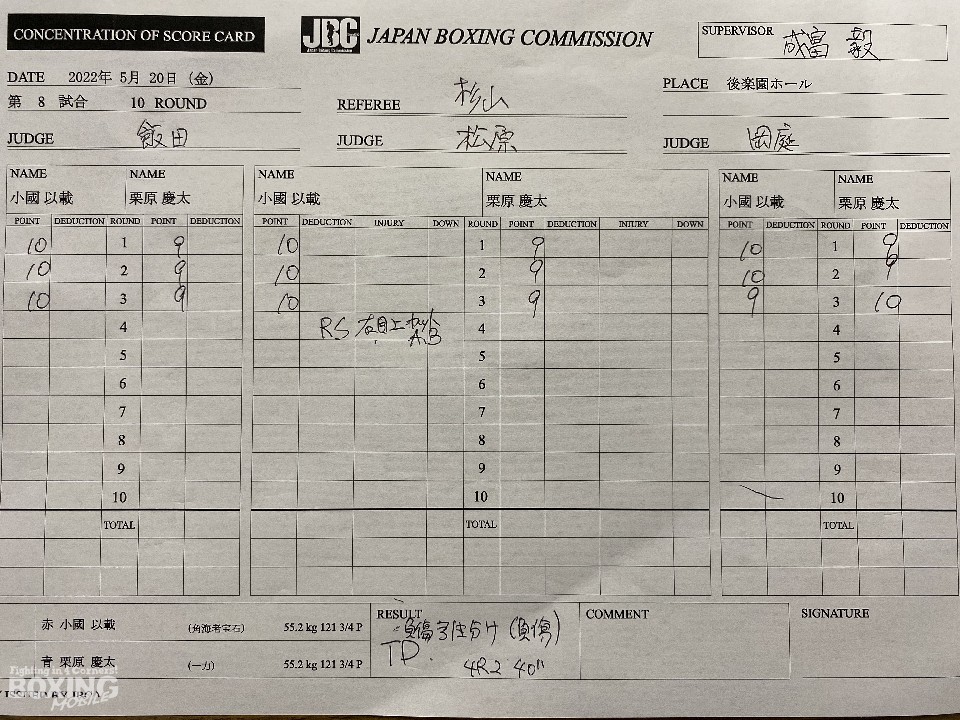 CONCENTRATION OF SCORE CARD
JBC JAPAN BOXING COMMISSION
SUPERVISOR 成富 毅
DATE 2022年 5月 20日 (金)
PLACE 後楽園ホール
第 8 試合 10 ROUND
REFEREE 杉山
JUDGE 飯田
JUDGE 松原
JUDGE 岡庭
NAME NAME NAME NAME NAME NAME
小國 以載 栗原 慶太 小國 以載 栗原 慶太 小國 以載 栗原 慶太
POINT DEDUCTION ROUND POINT DEDUCTION POINT DEDUCTION INJURY DOWN ROUND POINT DEDUCTION INJURY DOWN POINT DEDUCTION ROUND POINT DEDUCTION
10 1 9 10 1 9 10 1 9
10 2 9 10 2 9 10 2 9
10 3 9 10 3 9 9 3 10
4 RS 右目上カット A.B 4 4
5 5 5
6 6 6
7 7 7
8 8 8
9 9 9
10 10 10
TOTAL TOTAL TOTAL
赤 小國 以載 (角海老宝石) 55.2 kg 121 3/4 P
青 栗原 慶太 (一力) 55.2 kg 121 3/4 P
RESULT
負傷引き分け (負傷)
TD. 4R2 40"
COMMENT
SIGNATURE
Fighting in 4 Corners!
BOXING
MOBILE